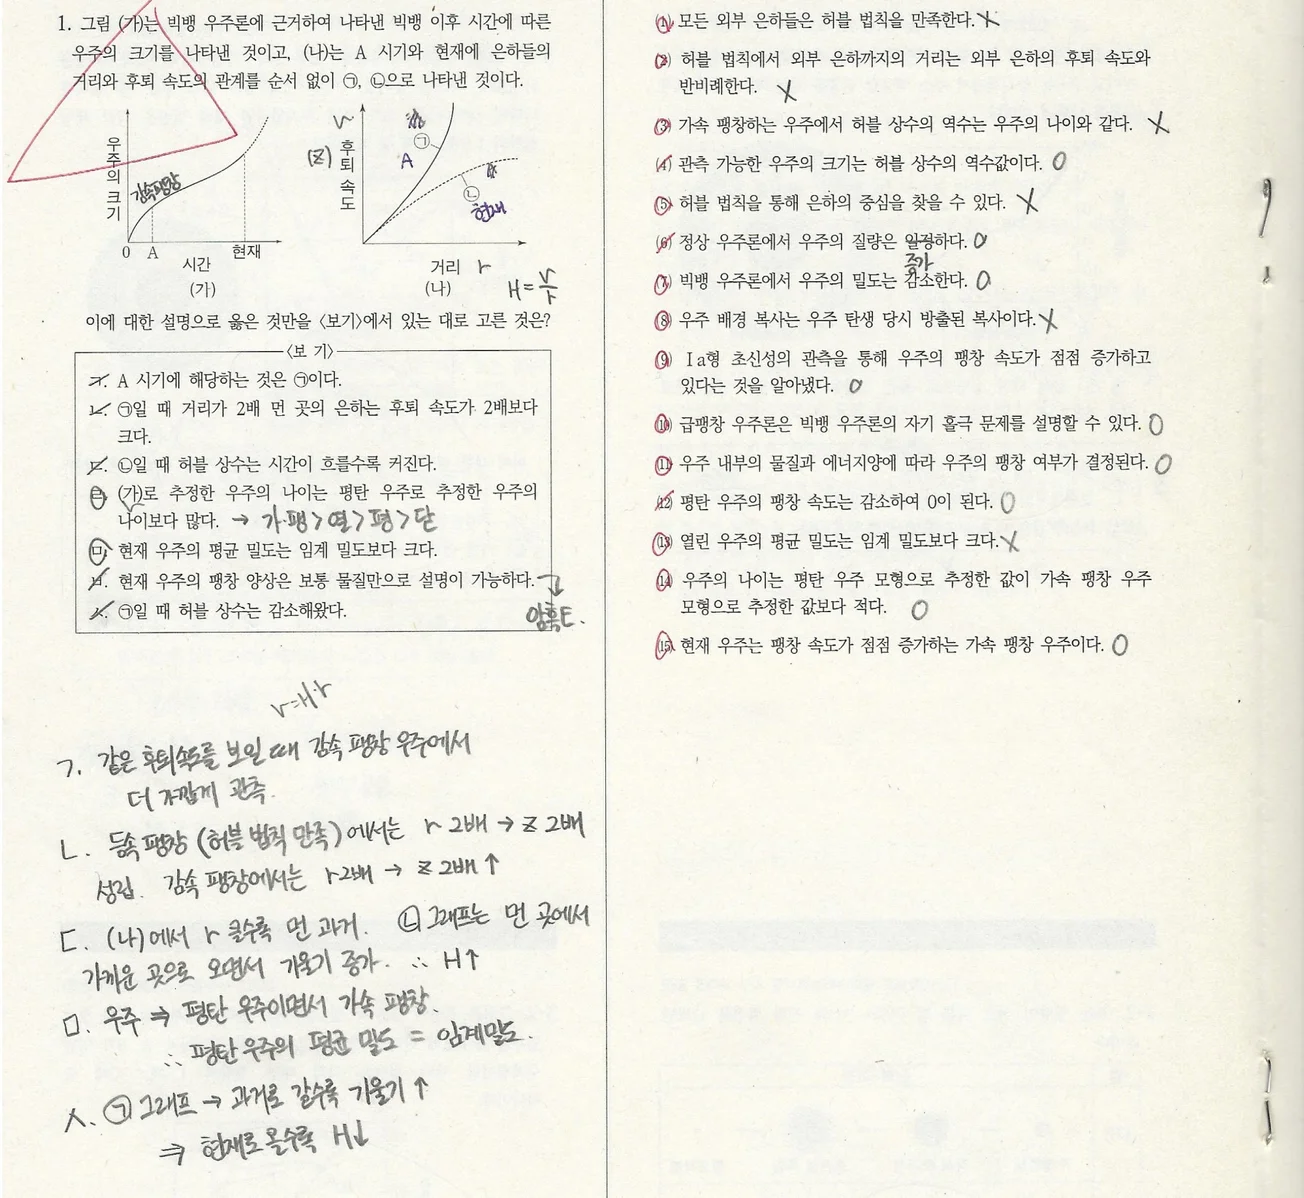 1. 그림 (가)는 빅뱅 우주론에 근거하여 나타낸 빅뱅 이후 시간에 따른
우주의 크기를 나타낸 것이고, (나)는 A 시기와 현재에 은하들의
거리와 후퇴 속도의 관계를 순서 없이 ㉠, ㉡으로 나타낸 것이다.
우주의 크기
감속팽창
0 A 현재
시간
(가)
v
(z) 후퇴 속도
㉠
A
㉡
현재
거리 r
(나) H=v/r
이에 대한 설명으로 옳은 것만을 〈보기〉에서 있는 대로 고른 것은?
〈보 기〉
ㄱ. A 시기에 해당하는 것은 ㉠이다.
ㄴ. ㉠일 때 거리가 2배 먼 곳의 은하는 후퇴 속도가 2배보다
크다.
ㄷ. ㉡일 때 허블 상수는 시간이 흐를수록 커진다.
ㄹ. (가)로 추정한 우주의 나이는 평탄 우주로 추정한 우주의
나이보다 많다. → 가·팽>열>평>닫
ㅁ. 현재 우주의 평균 밀도는 임계 밀도보다 크다.
ㅂ. 현재 우주의 팽창 양상은 보통 물질만으로 설명이 가능하다.
암흑E.
ㅅ. ㉠일 때 허블 상수는 감소해왔다.
v=H·r
ㄱ. 같은 후퇴속도를 보일 때 감속 팽창 우주에서
더 가깝게 관측.
ㄴ. 등속 팽창 (허블 법칙 만족)에서는 r 2배 → z 2배
성립. 감속 팽창에서는 r 2배 → z 2배↑
ㄷ. (나)에서 r 클수록 먼 과거. ㉡그래프는 먼 곳에서
가까운 곳으로 오면서 기울기 증가. ∴ H↑
ㅁ. 우주 ⇒ 평탄 우주이면서 가속 팽창.
∴ 평탄 우주의 평균 밀도 = 임계밀도.
ㅅ. ㉠그래프 → 과거로 갈수록 기울기↑
⇒ 현재로 올수록 H↓
(1) 모든 외부 은하들은 허블 법칙을 만족한다. X
(2) 허블 법칙에서 외부 은하까지의 거리는 외부 은하의 후퇴 속도와
반비례한다. X
(3) 가속 팽창하는 우주에서 허블 상수의 역수는 우주의 나이와 같다. X
(4) 관측 가능한 우주의 크기는 허블 상수의 역수값이다. O
(5) 허블 법칙을 통해 은하의 중심을 찾을 수 있다. X
(6) 정상 우주론에서 우주의 질량은 일정하다. O
증가
(7) 빅뱅 우주론에서 우주의 밀도는 감소한다. O
(8) 우주 배경 복사는 우주 탄생 당시 방출된 복사이다. X
(9) Ia형 초신성의 관측을 통해 우주의 팽창 속도가 점점 증가하고
있다는 것을 알아냈다. O
(10) 급팽창 우주론은 빅뱅 우주론의 자기 홀극 문제를 설명할 수 있다. O
(11) 우주 내부의 물질과 에너지양에 따라 우주의 팽창 여부가 결정된다. O
(12) 평탄 우주의 팽창 속도는 감소하여 0이 된다. O
(13) 열린 우주의 평균 밀도는 임계 밀도보다 크다. X
(14) 우주의 나이는 평탄 우주 모형으로 추정한 값이 가속 팽창 우주
모형으로 추정한 값보다 적다. O
(15) 현재 우주는 팽창 속도가 점점 증가하는 가속 팽창 우주이다. O